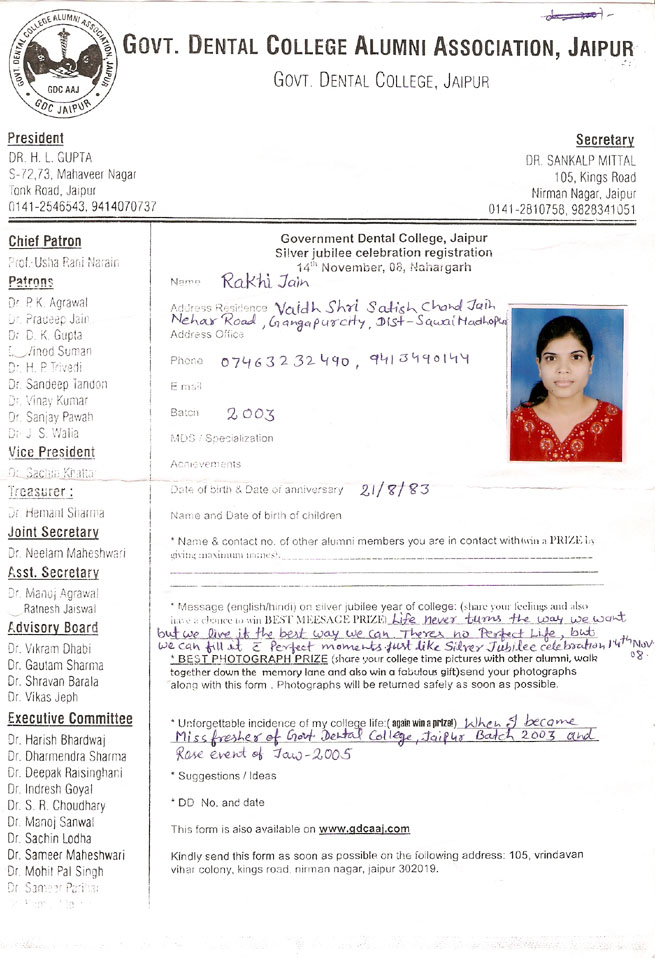 GOVT. DENTAL COLLEGE ALUMNI ASSOCIATION, JAIPUR
GOVT. DENTAL COLLEGE ALUMNI ASSOCIATION, JAIPUR
GDC AAJ
GDC JAIPUR
GOVT. DENTAL COLLEGE, JAIPUR
President
DR. H. L. GUPTA
S-72,73, Mahaveer Nagar
Tonk Road, Jaipur
0141-2546543, 9414070737
Secretary
DR. SANKALP MITTAL
105, Kings Road
Nirman Nagar, Jaipur
0141-2810758, 9828341051
Chief Patron
Prof. Usha Rani Narain
Patrons
Dr. P.K. Agrawal
Dr. Pradeep Jain
Dr. D. K. Gupta
Vinod Suman
Dr. H. P. Trivedi
Dr. Sandeep Tandon
Dr. Vinay Kumar
Dr. Sanjay Pawah
Dr. J. S. Walia
Vice President
Dr. Sachin
Treasurer :
Dr. Hemant Sharma
Joint Secretary
Dr. Neelam Maheshwari
Asst. Secretary
Dr. Manoj Agrawal
Ratnesh Jaiswal
Advisory Board
Dr. Vikram Dhabi
Dr. Gautam Sharma
Dr. Shravan Barala
Dr. Vikas Jeph
Executive Committee
Dr. Harish Bhardwaj
Dr. Dharmendra Sharma
Dr. Deepak Raisinghani
Dr. Indresh Goyal
Dr. S. R. Choudhary
Dr. Manoj Sanwal
Dr. Sachin Lodha
Dr. Sameer Maheshwari
Dr. Mohit Pal Singh
Dr. Sameer
Government Dental College, Jaipur
Silver jubilee celebration registration
14th November, 08, Nahargarh
Name Rakhi Jain
Address Residence Vaidh Shri Satish Chand Jain
Nehar Road, Gangapurcity, Dist-Sawai Madhopur
Address Office
Phone 07463232490, 9413490144
E mail
Batch 2003
MDS / Specialization
Achievements
Date of birth & Date of anniversary 21/8/83
Name and Date of birth of children
* Name & contact no. of other alumni members you are in contact with(win a PRIZE by
giving maximum names).
* Message (english/hindi) on silver jubilee year of college: (share your feelings and also
have a chance to win BEST MEESAGE PRIZE) Life never turns the way we want
but we live it the best way we can. Theres no Perfect Life, but
we can fill it c̄ Perfect moments just like Silver Jubilee celebration 14th Nov
08.
* BEST PHOTOGRAPH PRIZE (share your college time pictures with other alumni, walk
together down the memory lane and also win a fabulous gift)send your photographs
along with this form . Photographs will be returned safely as soon as possible.
* Unforgettable incidence of my college life:( again win a prize!) When I became
Miss fresher of Govt Dental College, Jaipur Batch 2003 and
Rose event of Jaw-2005
* Suggestions / Ideas
* DD No. and date
This form is also available on www.gdcaaj.com
Kindly send this form as soon as possible on the following address: 105, vrindavan
vihar colony, kings road, nirman nagar, jaipur 302019.